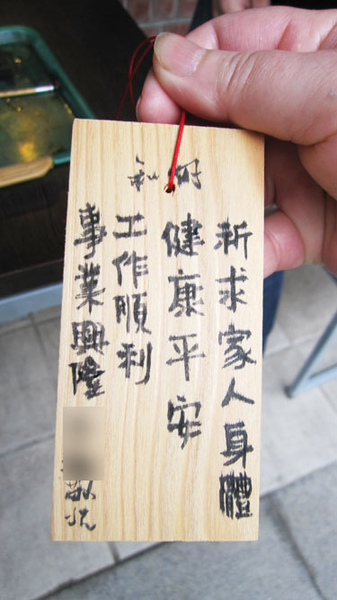 祈求家人身體
健康平安
工作順利
事業興隆